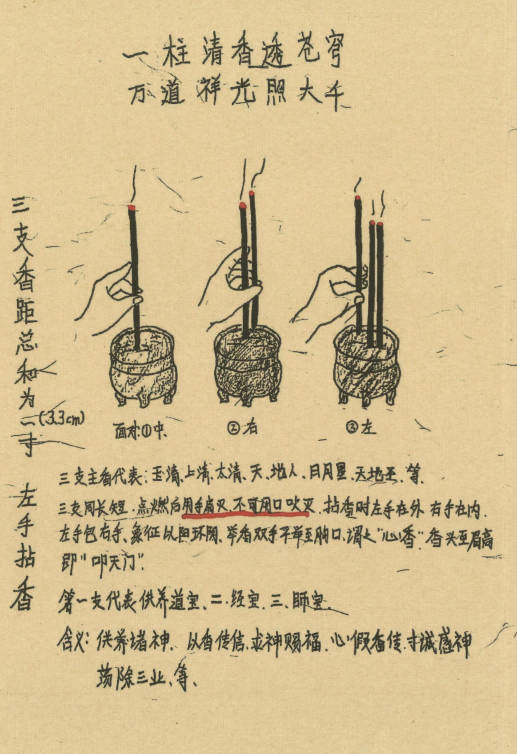 一柱清香透苍穹
万道祥光照大千
三支香距总和为一寸
(3.3cm)
左手拈香
面对①中.
②右
③左
三支主香代表:玉清、上清、太清、天、地、人、日月星、天地王、等.
三支同长短.点燃后用手扇灭.不可用口吹灭.拈香时左手在外 右手在内.
左手包右手、象征以阳环阴、举香双手平举至胸口.谓之"心香"香头至眉高
即"叩天门".
第一支代表供养道宝、二.经宝、三.師宝.
含义:供养诸神、以香传信、求神赐福、心假香传、寸诚感神
荡除三业、等、